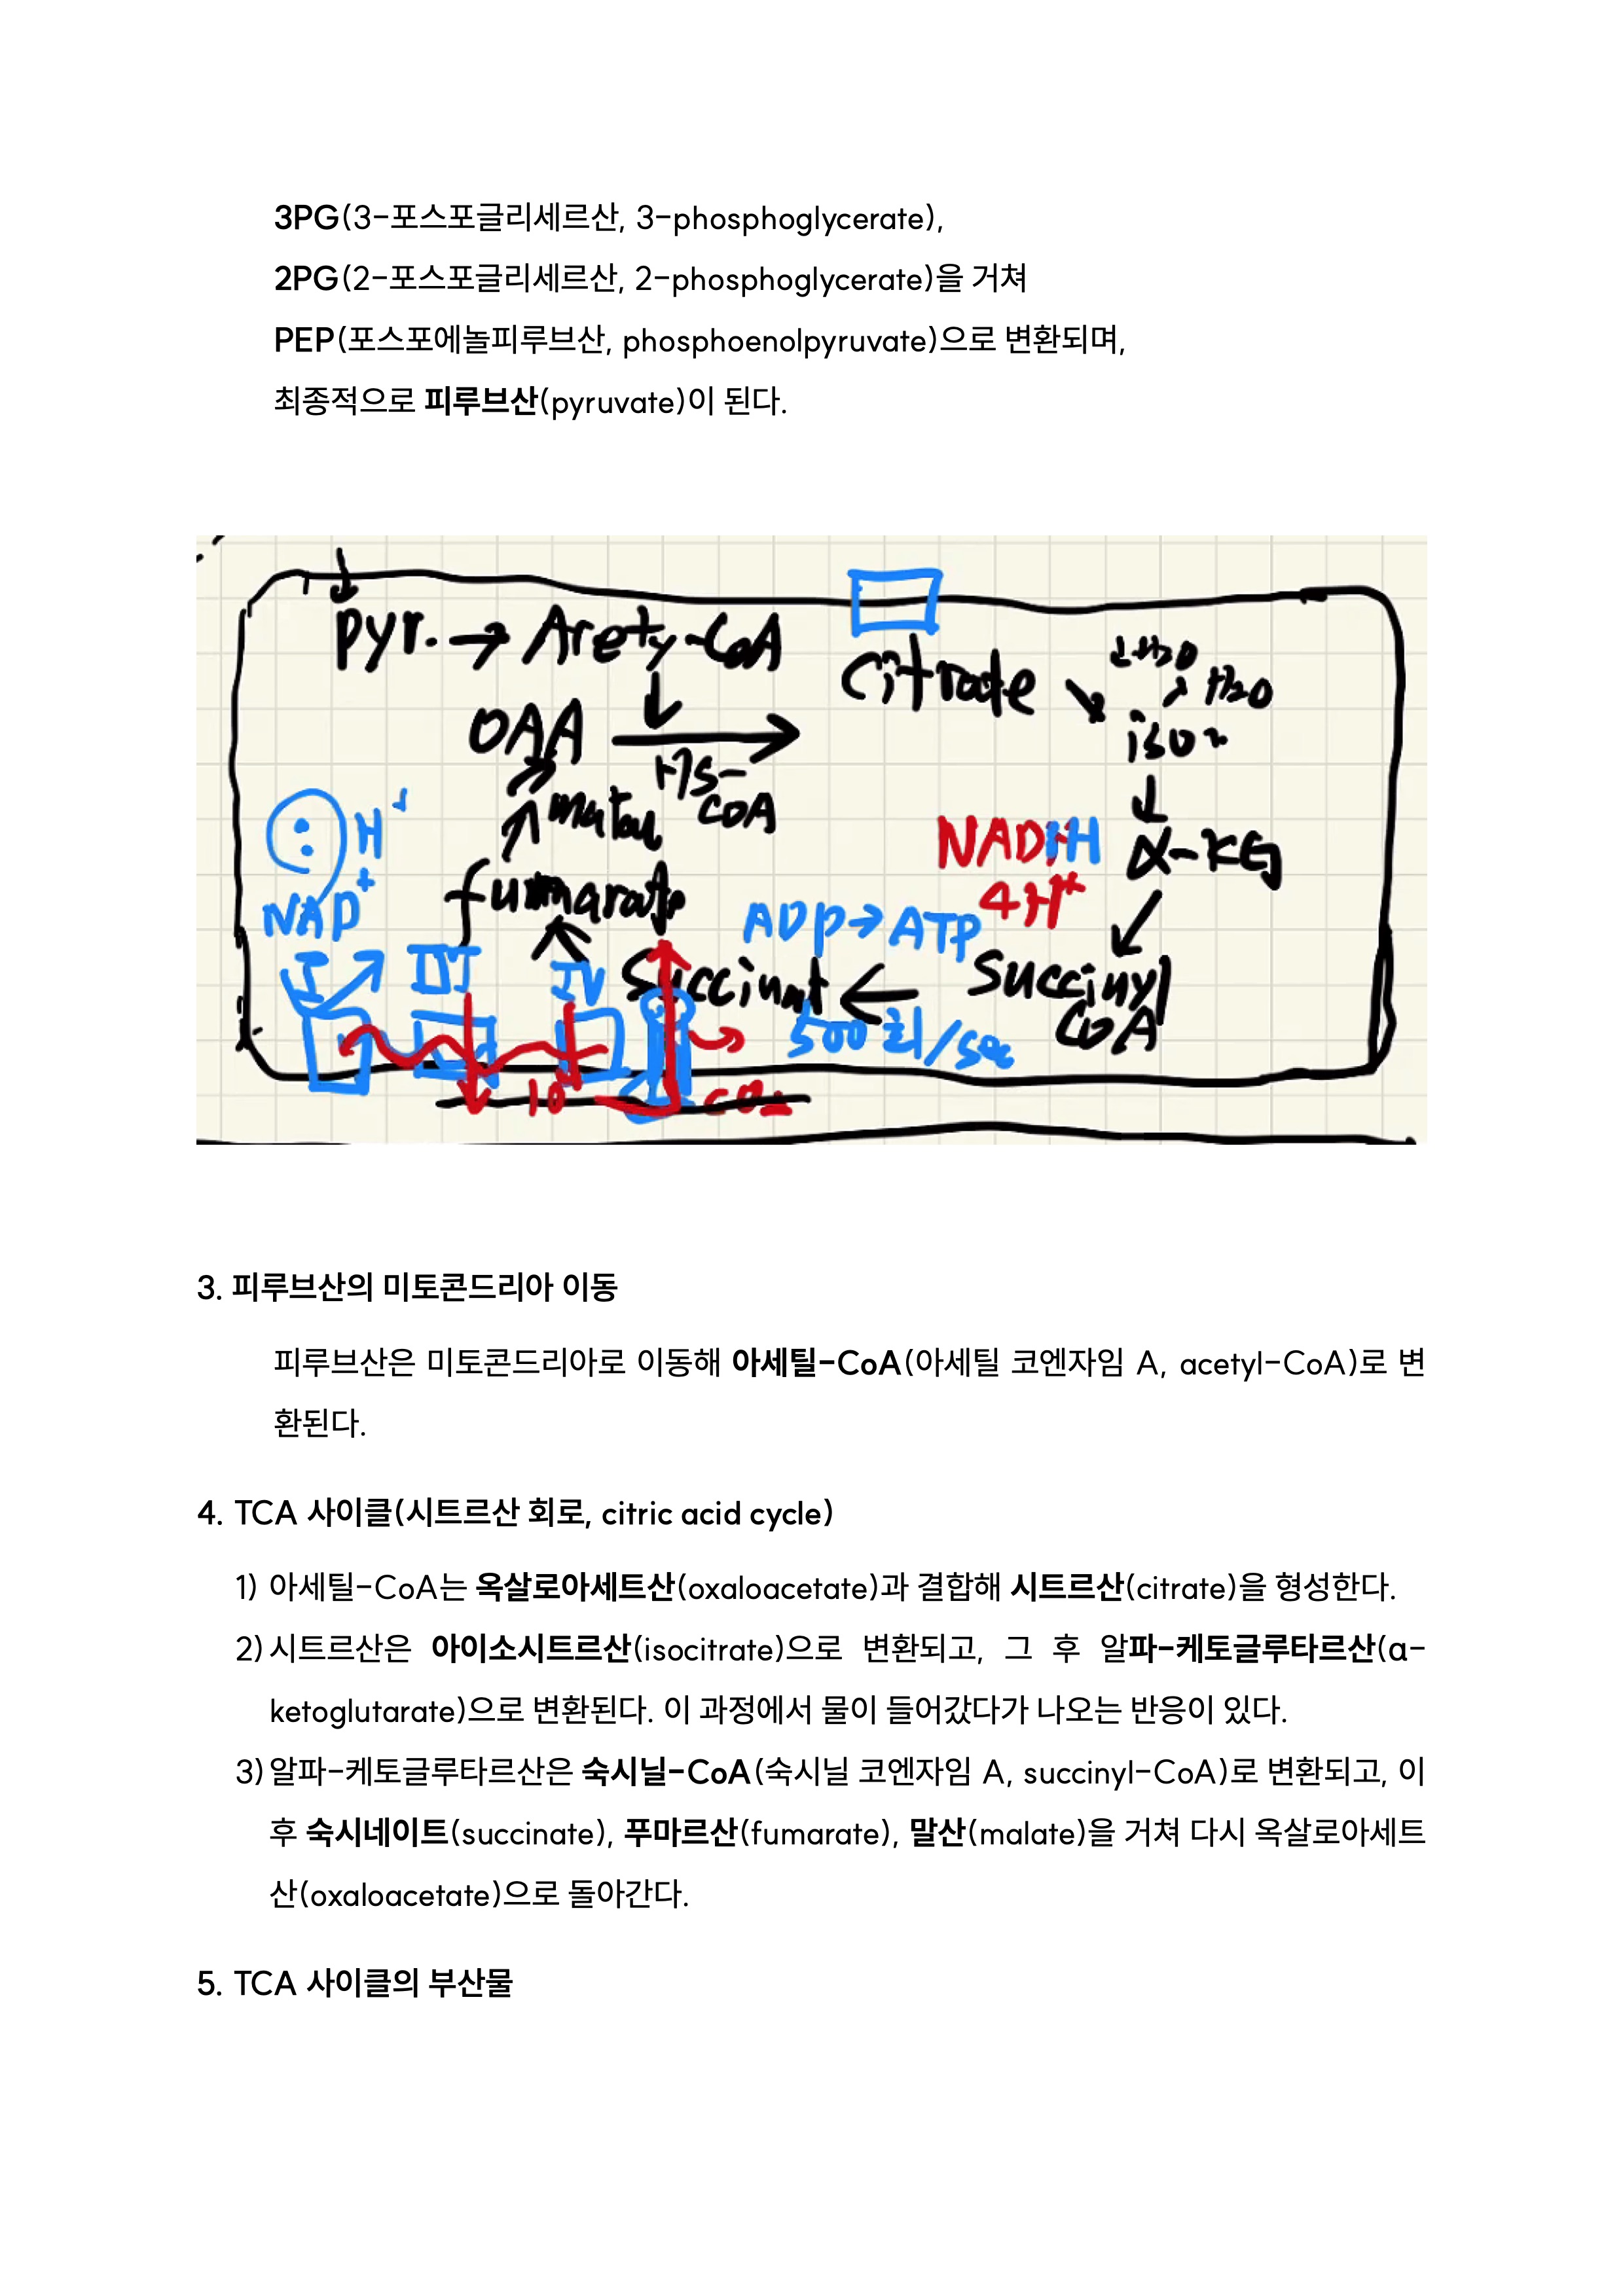 3PG(3-포스포글리세르산, 3-phosphoglycerate),
2PG(2-포스포글리세르산, 2-phosphoglycerate)을 거쳐
PEP(포스포에놀피루브산, phosphoenolpyruvate)으로 변환되며,
최종적으로 피루브산(pyruvate)이 된다.
pyr. → Acety-CoA
Citrate
H2O
H2O
OAA
HS-
CoA
iso~
H+
NAD+
fumarate
NADH
4H+
α-KG
ADP→ATP
I
III
IV
Succinat
Succinyl
CoA
500회/sec
10
3. 피루브산의 미토콘드리아 이동
피루브산은 미토콘드리아로 이동해 아세틸-CoA(아세틸 코엔자임 A, acetyl-CoA)로 변
환된다.
4. TCA 사이클(시트르산 회로, citric acid cycle)
1) 아세틸-CoA는 옥살로아세트산(oxaloacetate)과 결합해 시트르산(citrate)을 형성한다.
2) 시트르산은 아이소시트르산(isocitrate)으로 변환되고, 그 후 알파-케토글루타르산(α-
ketoglutarate)으로 변환된다. 이 과정에서 물이 들어갔다가 나오는 반응이 있다.
3) 알파-케토글루타르산은 숙시닐-CoA(숙시닐 코엔자임 A, succinyl-CoA)로 변환되고, 이
후 숙시네이트(succinate), 푸마르산(fumarate), 말산(malate)을 거쳐 다시 옥살로아세트
산(oxaloacetate)으로 돌아간다.
5. TCA 사이클의 부산물